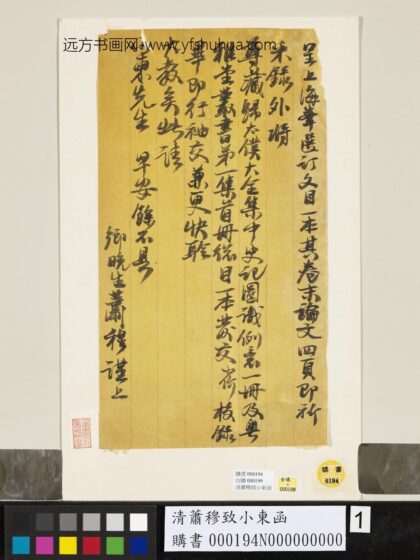 远方书画网·www.yfshuhua.com
呈上海單選訂文目一本其卷末論文四頁即祈
未錄外將
尊藏歸太僕大全集中史記圖識例意一冊及粵
雅堂叢書第一集首冊總目一本發交
校錄
畢即行袖交兼更快聆
教矣此請
東先生 早安餘不具
鄉晚生蕭穆謹上
購書 000194
000199
清蕭穆致小東函
購書
0194
000199
清蕭穆致小東函
購書 000194N000000000
1